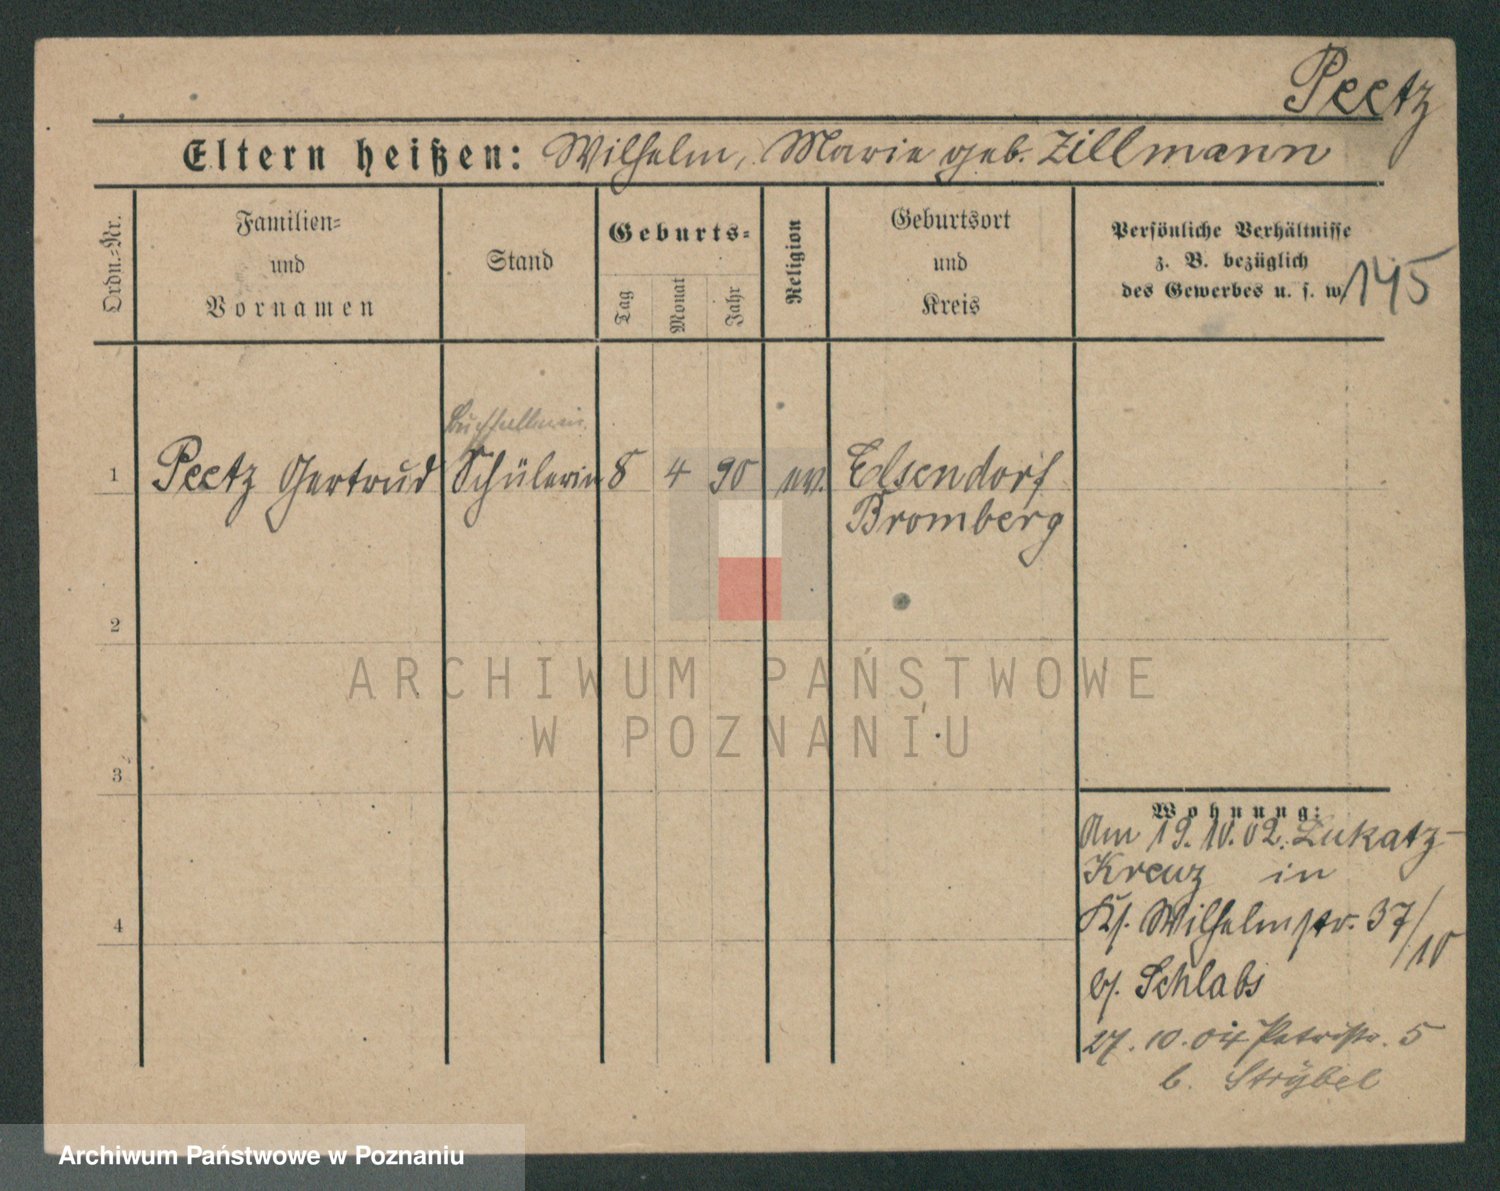 Peetz
Eltern heißen: Wilhelm, Marie geb. Zillmann
Ordn.-Nr.
Familien-
und
Vornamen
Stand
Geburts-
Tag
Monat
Jahr
Religion
Geburtsort
und
Kreis
Persönliche Verhältnisse
z. B. bezüglich
des Gewerbes u. s. w.
145
1 Peetz Gertrud Schülerin 8 4 90 ev. Elsendorf
Bromberg
2
3
4
Wohnung:
Am 19.10.02. Lukatz-
Kreuz in
Wilhelmstr. 37/10
b/. Schlabs
27.10.04 Petristr. 5
b. Strÿbel
ARCHIWUM PAŃSTWOWE
W POZNANIU
Archiwum Państwowe w Poznaniu